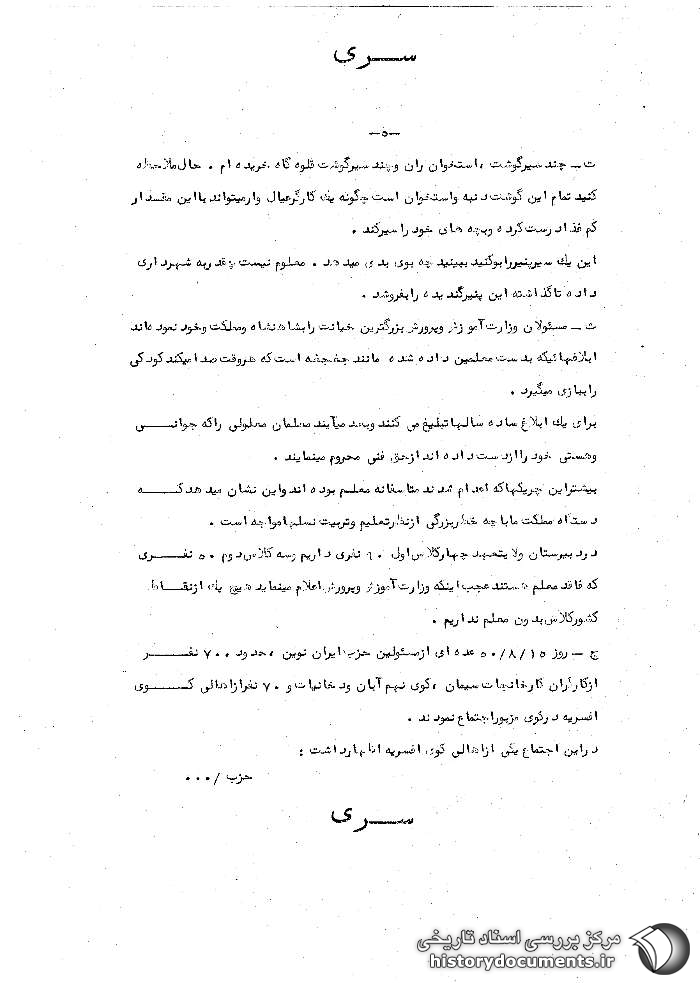 سری
-۵-
ت - چند سیرگوشت ، استخوان ران و چند سیرگوشت قلوه گاه خریده ام . حال ملاحظه
کنید تمام این گوشت دنبه واستخوان است چگونه یك کارگرعیال وارمیتواند بااین مقدار
کم غذا درست کرده وبچه های خود را سیرکند .
این یك سیرپنیررابوکنید ببینید چه بوی بدی میدهد . معلوم نیست چقدر به شهرداری
داده تاگذاشته این پنیرگندیده رابفروشد .
ث - مسئولان وزارت آموزش وپرورش بزرگترین خیانت رابشاهنشاه ومملکت وخود نموده اند
ابلاغهائیکه بدست معلمین داده شده مانند جغجغه است که هروقت صدا میکند کودکی
راببازی میگیرد .
برای یك ابلاغ ساده سالهاتبلیغ می کنند وبعد میآیند معلمان معلولی راکه جوانی
وهستی خود را ازدست داده اند ازحق فنی محروم مینمایند .
بیشتراین چریکهاکه اعدام شدند متاسفانه معلم بوده اند واین نشان میدهد که
دستگاه مملکت مابا چه خطربزرگی ازنظرتعلیم وتربیت نسلهامواجه است .
در دبیرستان ولایتعهد چهارکلاس اول ۶۰ نفری داریم وسه کلاس دوم ۵۰ نفری
که فاقد معلم هستند عجب اینکه وزارت آموزش وپرورش اعلام مینماید هیچ یك ازنقاط
کشورکلاس بدون معلم نداریم .
ج - روز ۵۰/۸/۱۵ عده ای ازمسئولین حزب ایران نوین ، حدود ۷۰۰ نفر
ازکارگران کارخانجات سیمان ، کوی نهم آبان ودخانیات و ۷۰ نفرازاهالی کوی
افسریه درکوی مزبوراجتماع نمودند .
دراین اجتماع یکی ازاهالی کوی افسریه اظهارداشت :
حزب /...
سری
مرکز بررسی اسناد تاریخی
historydocuments.ir